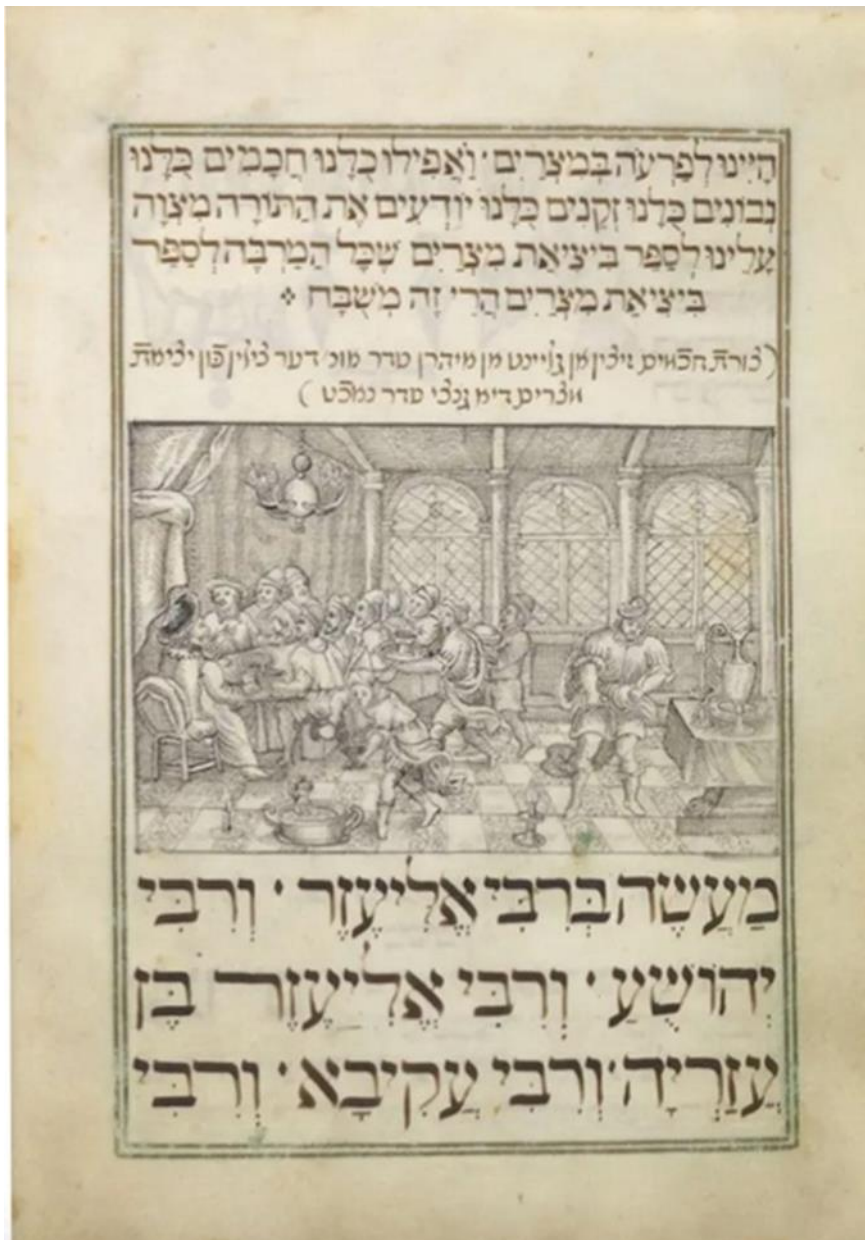 הָיִינוּ לְפַרְעֹה בְּמִצְרַיִם · וַאֲפִילוּ כֻּלָּנוּ חֲכָמִים כֻּלָּנוּ
נְבוֹנִים כֻּלָּנוּ זְקֵנִים כֻּלָּנוּ יוֹדְעִים אֶת הַתּוֹרָה מִצְוָה
עָלֵינוּ לְסַפֵּר בִּיצִיאַת מִצְרַיִם שֶׁכָּל הַמַרְבֶּה לְסַפֵּר
בִּיצִיאַת מִצְרַיִם הֲרֵי זֶה מְשֻׁבָּח
(צורת חכמים זיצין אן גליינט אן איהרן סדר אונ' דער צילין פון יציאת
מצרים דיא גנצי סדר נאכט)
מַעֲשֶׂה בְּרִבִּי אֱלִיעֶזֶר · וְרִבִּי
יְהוֹשֻׁעַ · וְרִבִּי אֱלִיעֶזֶר בֶּן
עֲזַרְיָה · וְרִבִּי עֲקִיבָא · וְרִבִּי